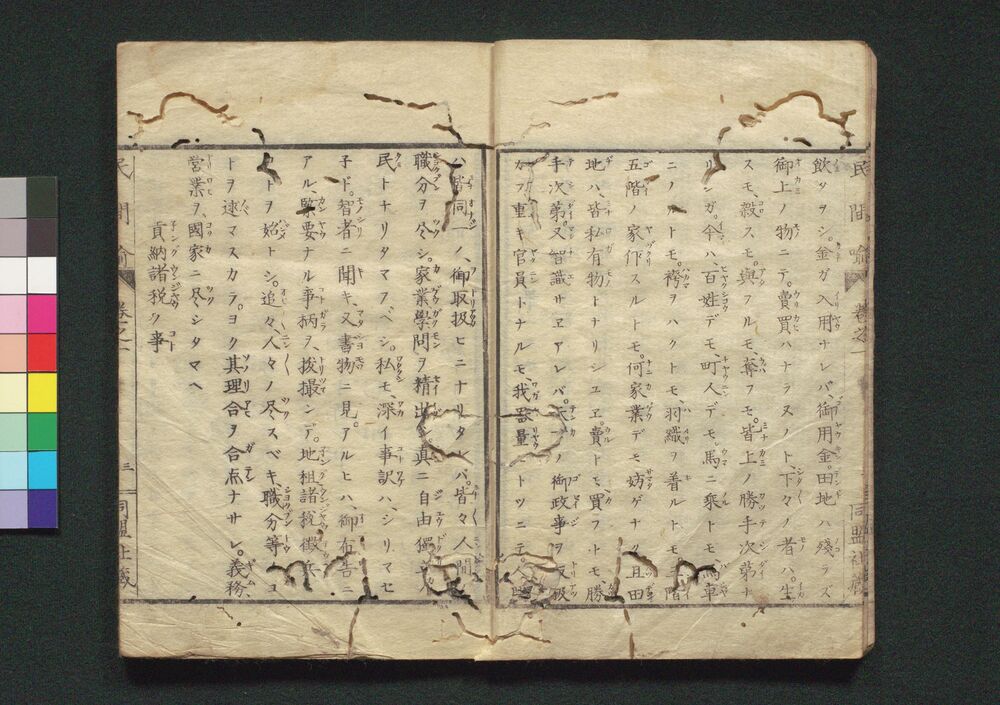 飲タヲシ。金ガ入用ナレバ、御用金。田地ハ殘ラズ
御上ノ物ニテ。賣買ハナラヌノト、下々ノ者ハ。生
スモ、殺スモ。與フルモ、奪フモ。皆上ノ勝手次第ナ
リシガ。今ハ、百姓デモ、町人デモ。馬ニ乘トモ馬車
ニノルトモ。袴ヲハクトモ、羽織ヲ着ルトモ。三階
五階ノ家作スルトモ。何家業デモ妨ゲナク。且田
地ハ、皆私有物トナリシユヱ賣トモ買フトモ勝
手次第。又智識サヱアレバ。天下ノ御政事ヲ取扱
カフ重キ官員トナルモ、我器量一トツニテ。
ハ皆同一ノ、御取扱ヒニナリタレバ。皆々人間ノ
職分ヲ尽シ。家業學問ヲ精出シ。真ニ自由獨立ノ
民トナリタマフベシ。私モ、深イ事訳ハ、シリマセ
子ド。智者ニ聞キ、又書物ニ見。アルヒハ、御布告ニ
アル、緊要ナル事柄ヲ、拔撮ンデ。地租諸税徴兵
ノコトヲ始トシ。追々、人々ノ尽スベキ、職分等ノコ
トヲ述マスカラ。ヨク其理合ヲ合点ナサレ。義務
営業ヲ、國家ニ尽シタマヘ
貢納諸税ノ事
民間喩
卷之一
三
同盟社藏